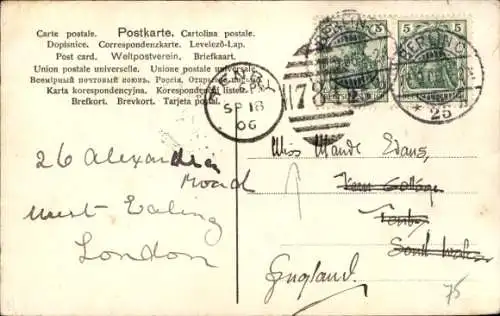 Carte postale. Postkarte. Cartolina postale.
Dopisnice. Correspondenzkarte. Levelező-Lap.
Post card. Weltpostverein. Briefkaart.
Union postale universelle. Unione postale universale.
Всемірный почтовый союзъ. Россія. Открытое
Karta korespondencyjna. Korespondenční listek.
Brefkort. Brevkort. Tarjeta postal.
5
5 5
BERLIN
25
78
SP 18
06
Miss Maude Evans,
Fern Cottage
Tenby
South Wales
England.
26 Alexandra
Road
West Ealing
London
75